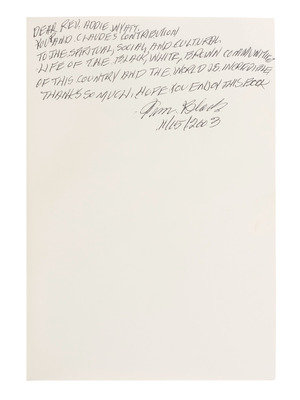 DEAR REV. ADDIE WYATT,
YOU AND CLAUDE'S CONTRIBUTION
TO THE SPIRITUAL, SOCIAL, AND CULTURAL
LIFE OF THE BLACK, WHITE, BROWN COMMUNITIES
OF THIS COUNTRY AND THE WORLD IS INCREDIBLE,
THANKS SO MUCH. HOPE YOU ENJOY THIS BOOK
11/15/2003